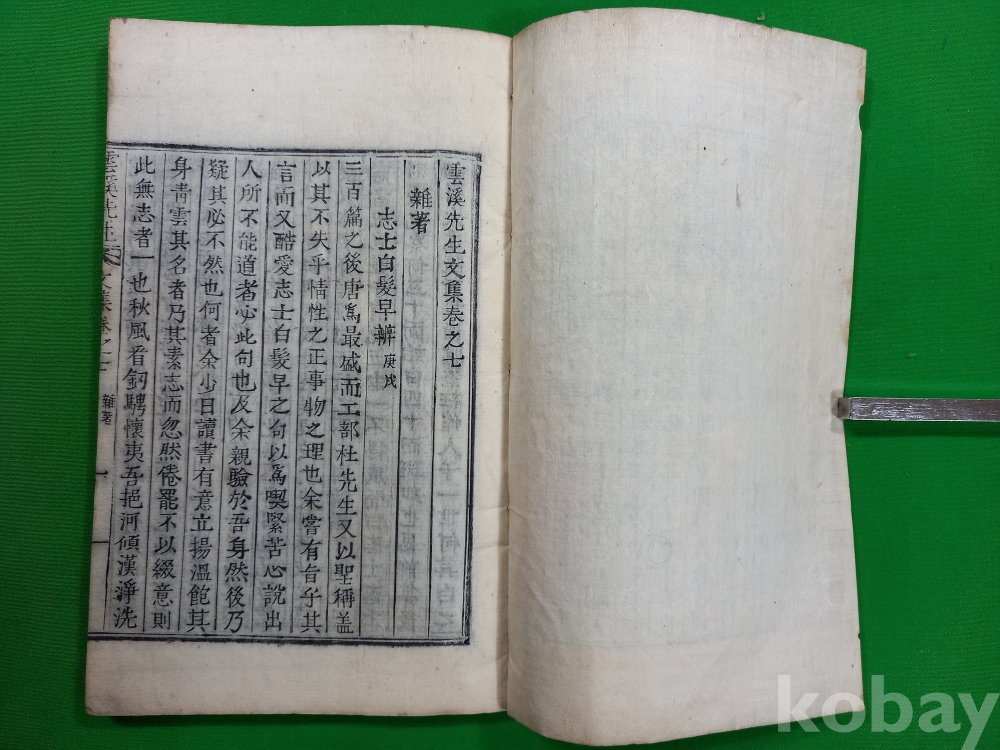 雲溪先生文集卷之七
雜著
志士白髮早辨 庚戌
三百篇之後唐爲最盛而工部杜先生又以聖稱盖
以其不失乎情性之正事物之理也余嘗有旨乎其
言而又酷愛志士白髮早之句以爲喫緊苦心說出
人所不能道者必此句也及余親驗於吾身然後乃
疑其必不然也何者余少日讀書有意立揚溫飽其
身靑雲其名者乃其素志而忽然倦罷不以綴意則
此無志者一也秋風看釼騁懷夷吾挹河傾漢淨洗
雲溪先生文集卷之七 雜著 一
kobay